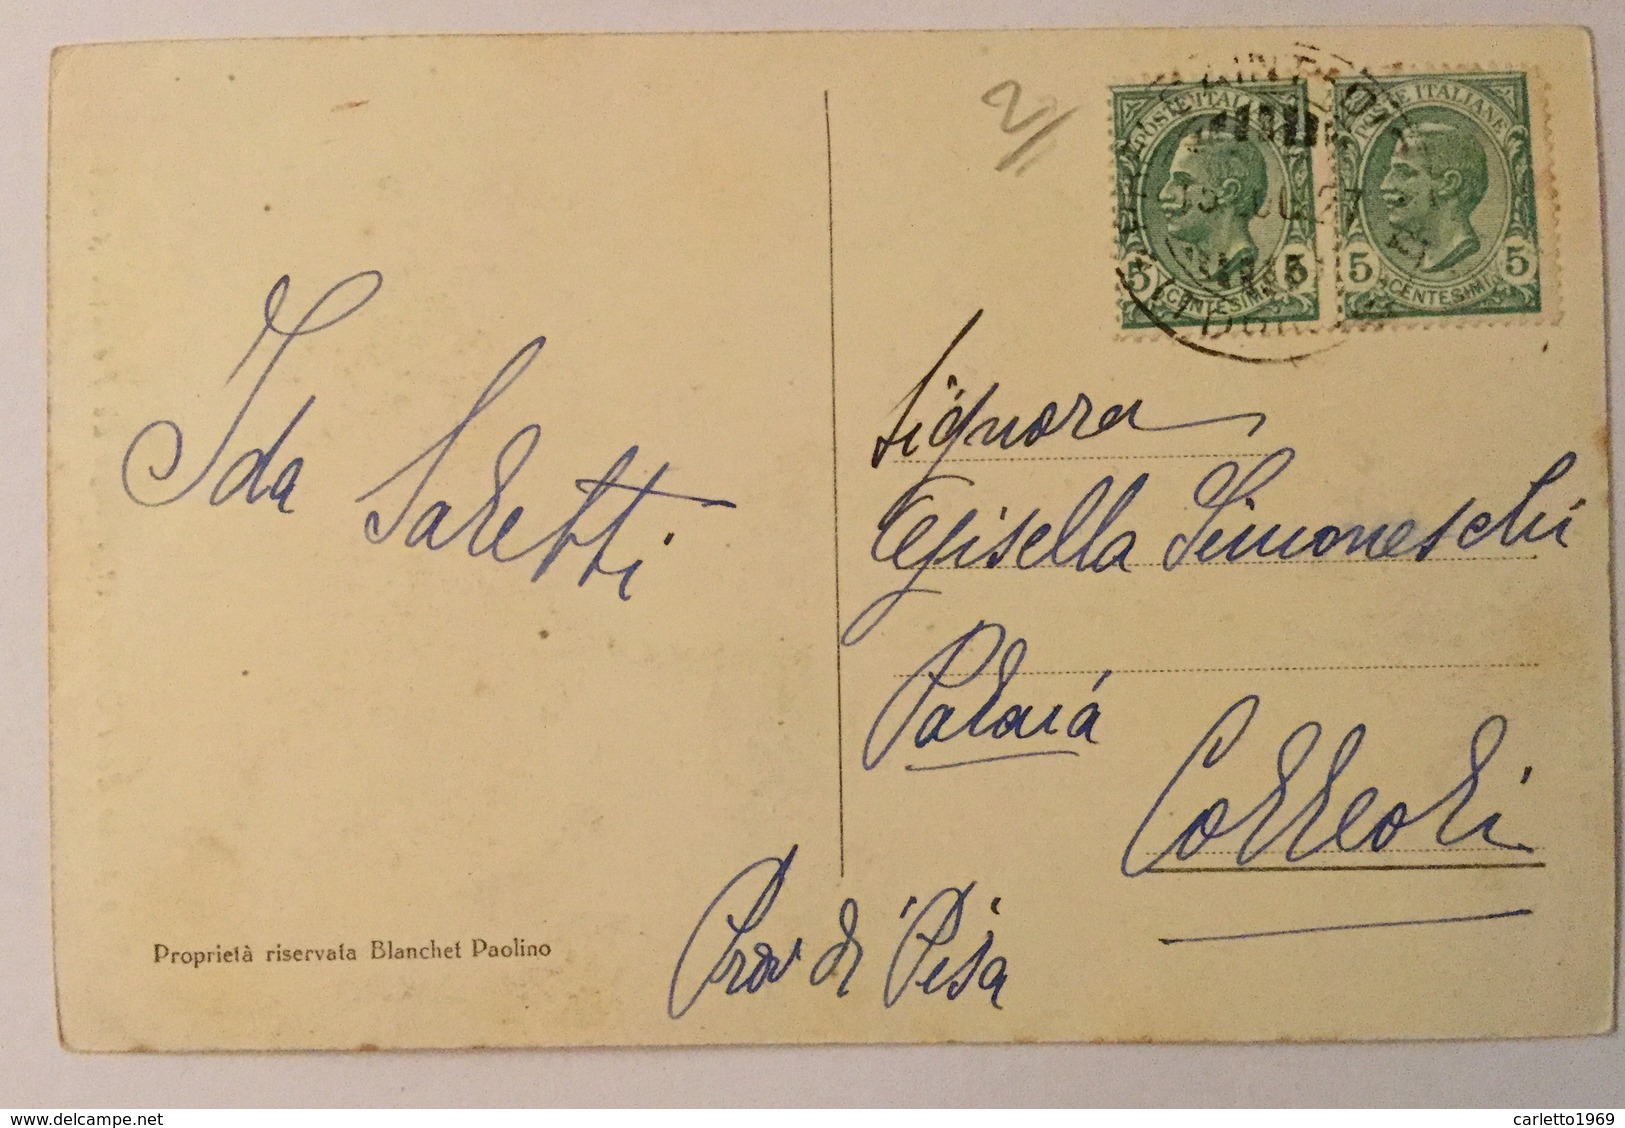 2/
POSTE ITALIANE
5 CENTESIMI 5
POSTE ITALIANE
5 CENTESIMI 5
Ida Saletti
Signora
Gisella Simoneschi
Palaiá
Colleoli
Prov di Pisa
Proprietà riservata Blanchet Paolino
delcampe.net
carletto1969